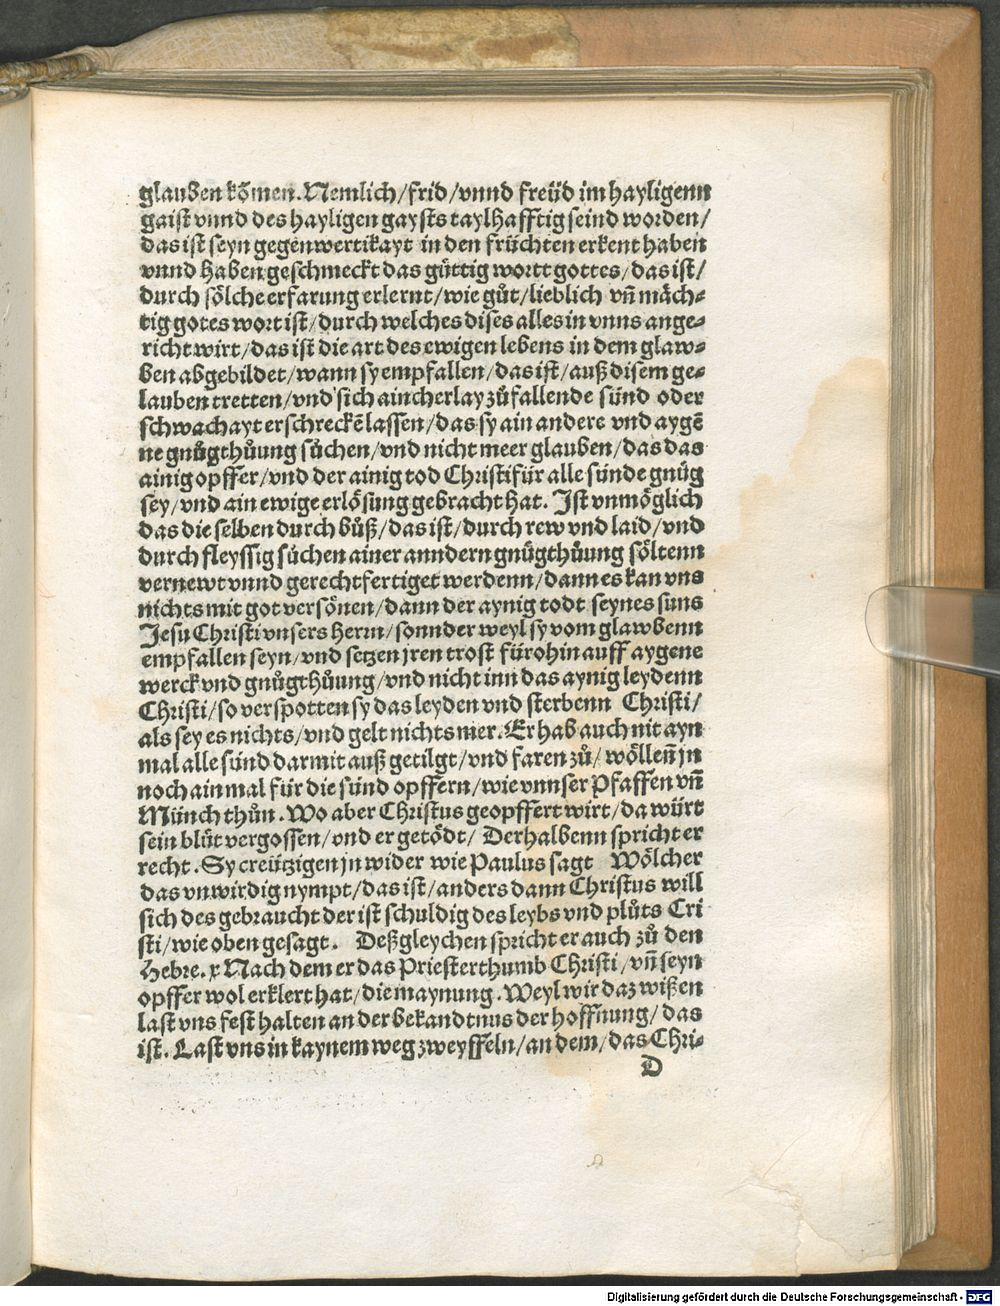 glauben kõmen. Nemlich/ frid/ vnnd freüd im hayligenn
gaist vnnd des hayligen gaysts taylhafftig seind worden/
das ist seyn gegenwertikayt in den früchten erkent haben
vnnd haben geschmeckt das güttig wortt gottes/ das ist/
durch sölche erfarung erlernt/ wie gůt/ lieblich vñ mäch⸗
tig gotes wort ist/ durch welches dises alles in vnns ange⸗
richt wirt/ das ist die art des ewigen lebens in dem glaw⸗
ben abgebildet/ wann sy empfallen/ das ist/ auß disem ge⸗
lauben tretten/ vnd sich aincherlay zůfallende sünd oder
schwachayt erschreckẽ lassen/ das sy ain andere vnd aygẽ
ne gnůgthůung sůchen/ vnd nicht meer glauben/ das das
ainig opffer/ vnd der ainig tod Christi für alle sünde gnůg
sey/ vnd ain ewige erlösung gebracht hat. Ist vnmöglich
das die selben durch bůß/ das ist/ durch rew vnd laid/ vnd
durch fleyssig sůchen ainer anndern gnůgthůung söltenn
vernewt vnnd gerechtfertiget werdenn/ dann es kan vns
nichts mit got versönen/ dann der aynig todt seynes suns
Jesu Christi vnsers herrn/ sonnder weyl sy vom glawbenn
empfallen seyn/ vnd setzen jren trost fürohin auff aygene
werck vnd gnůgthůung/ vnd nicht inn das aynig leydenn
Christi/ so verspotten sy das leyden vnd sterbenn Christi/
als sey es nichts/ vnd gelt nichts mer. Er hab auch nit ayn
mal alle sünd darmit auß getilgt/ vnd faren zů/ wöllenñ jn
noch ain mal für die sünd opffern/ wie vnnser Pfaffen vñ
Münch thůn. Wo aber Christus geopffert wirt/ da würt
sein blůt vergossen/ vnd er getödt/ Derhalbenn spricht er
recht. Sy creützigen jn wider wie Paulus sagt Wölcher
das vnwirdig nympt/ das ist/ anders dann Christus will
sich des gebraucht der ist schuldig des leybs vnd plůts Cri
sti/ wie oben gesagt. Deßgleychen spricht er auch zů den
Hebre. x Nach dem er das Priesterthumb Christi/ vñ seyn
opffer wol erklert hat/ die maynung. Weyl wir daz wißen
last vns fest halten an der bekandtnus der hoffnung/ das
ist. Last vns in kaynem weg zweyffeln/ an dem/ das Chri⸗
D
Digitalisierung gefördert durch die Deutsche Forschungsgemeinschaft - DFG